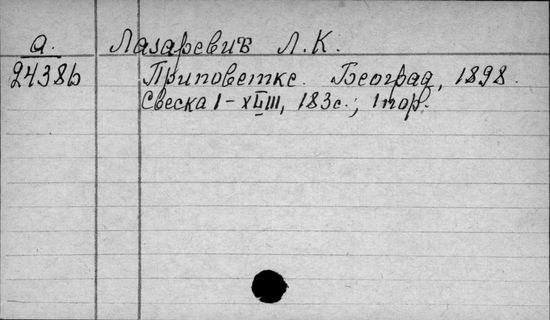 а. Лазаревић Л. К.
24386 Приповетке. Београд, 1898.
Свеска I-XVIII, 183с.; 1 пор.